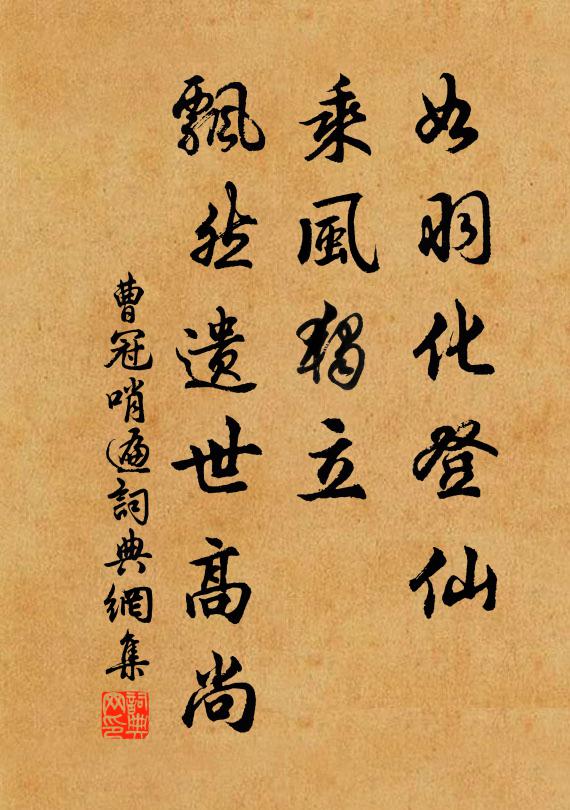 如羽化登仙
乘風獨立
飄然遺世高尚
曹冠哨遍詞典網集
詞典网印